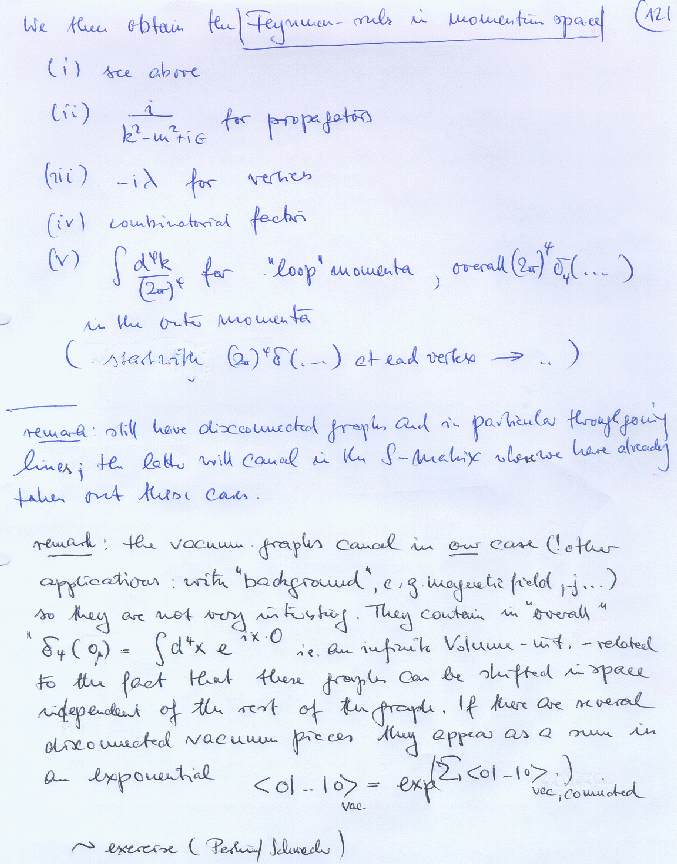 We then obtain the Feynman-rules in momentum space (121
(i) see above
(ii) i / (k²-m²+iє) for propagators
(iii) -iλ for vertices
(iv) combinatorial factor
(v) ∫ d⁴k / (2π)⁴ for "loop" momenta, overall (2π)⁴ δ₄(....)
in the outer momenta
( start with (2π)⁴ δ(...) at each vertex → .. )
remark: still have disconnected graphs and in particular through going
lines; the latter will cancel in the S-matrix where we have already
taken out these cases.
remark: the vacuum graphs cancel in our case (! other
applications: with "background", e.g. magnetic field, j...)
so they are not very interesting. They contain in "overall"
" δ₄(0) = ∫d⁴x e^{ix·0} i.e. an infinite Volume-int. - related
to the fact that these graphs can be shifted in space
independent of the rest of the graph. If there are several
disconnected vacuum pieces they appear as a sum in
an exponential <0|..|0>_vac. = exp(Σ<0|..|0>_vac, connected)
~ exercise (Peskin/Schroeder)